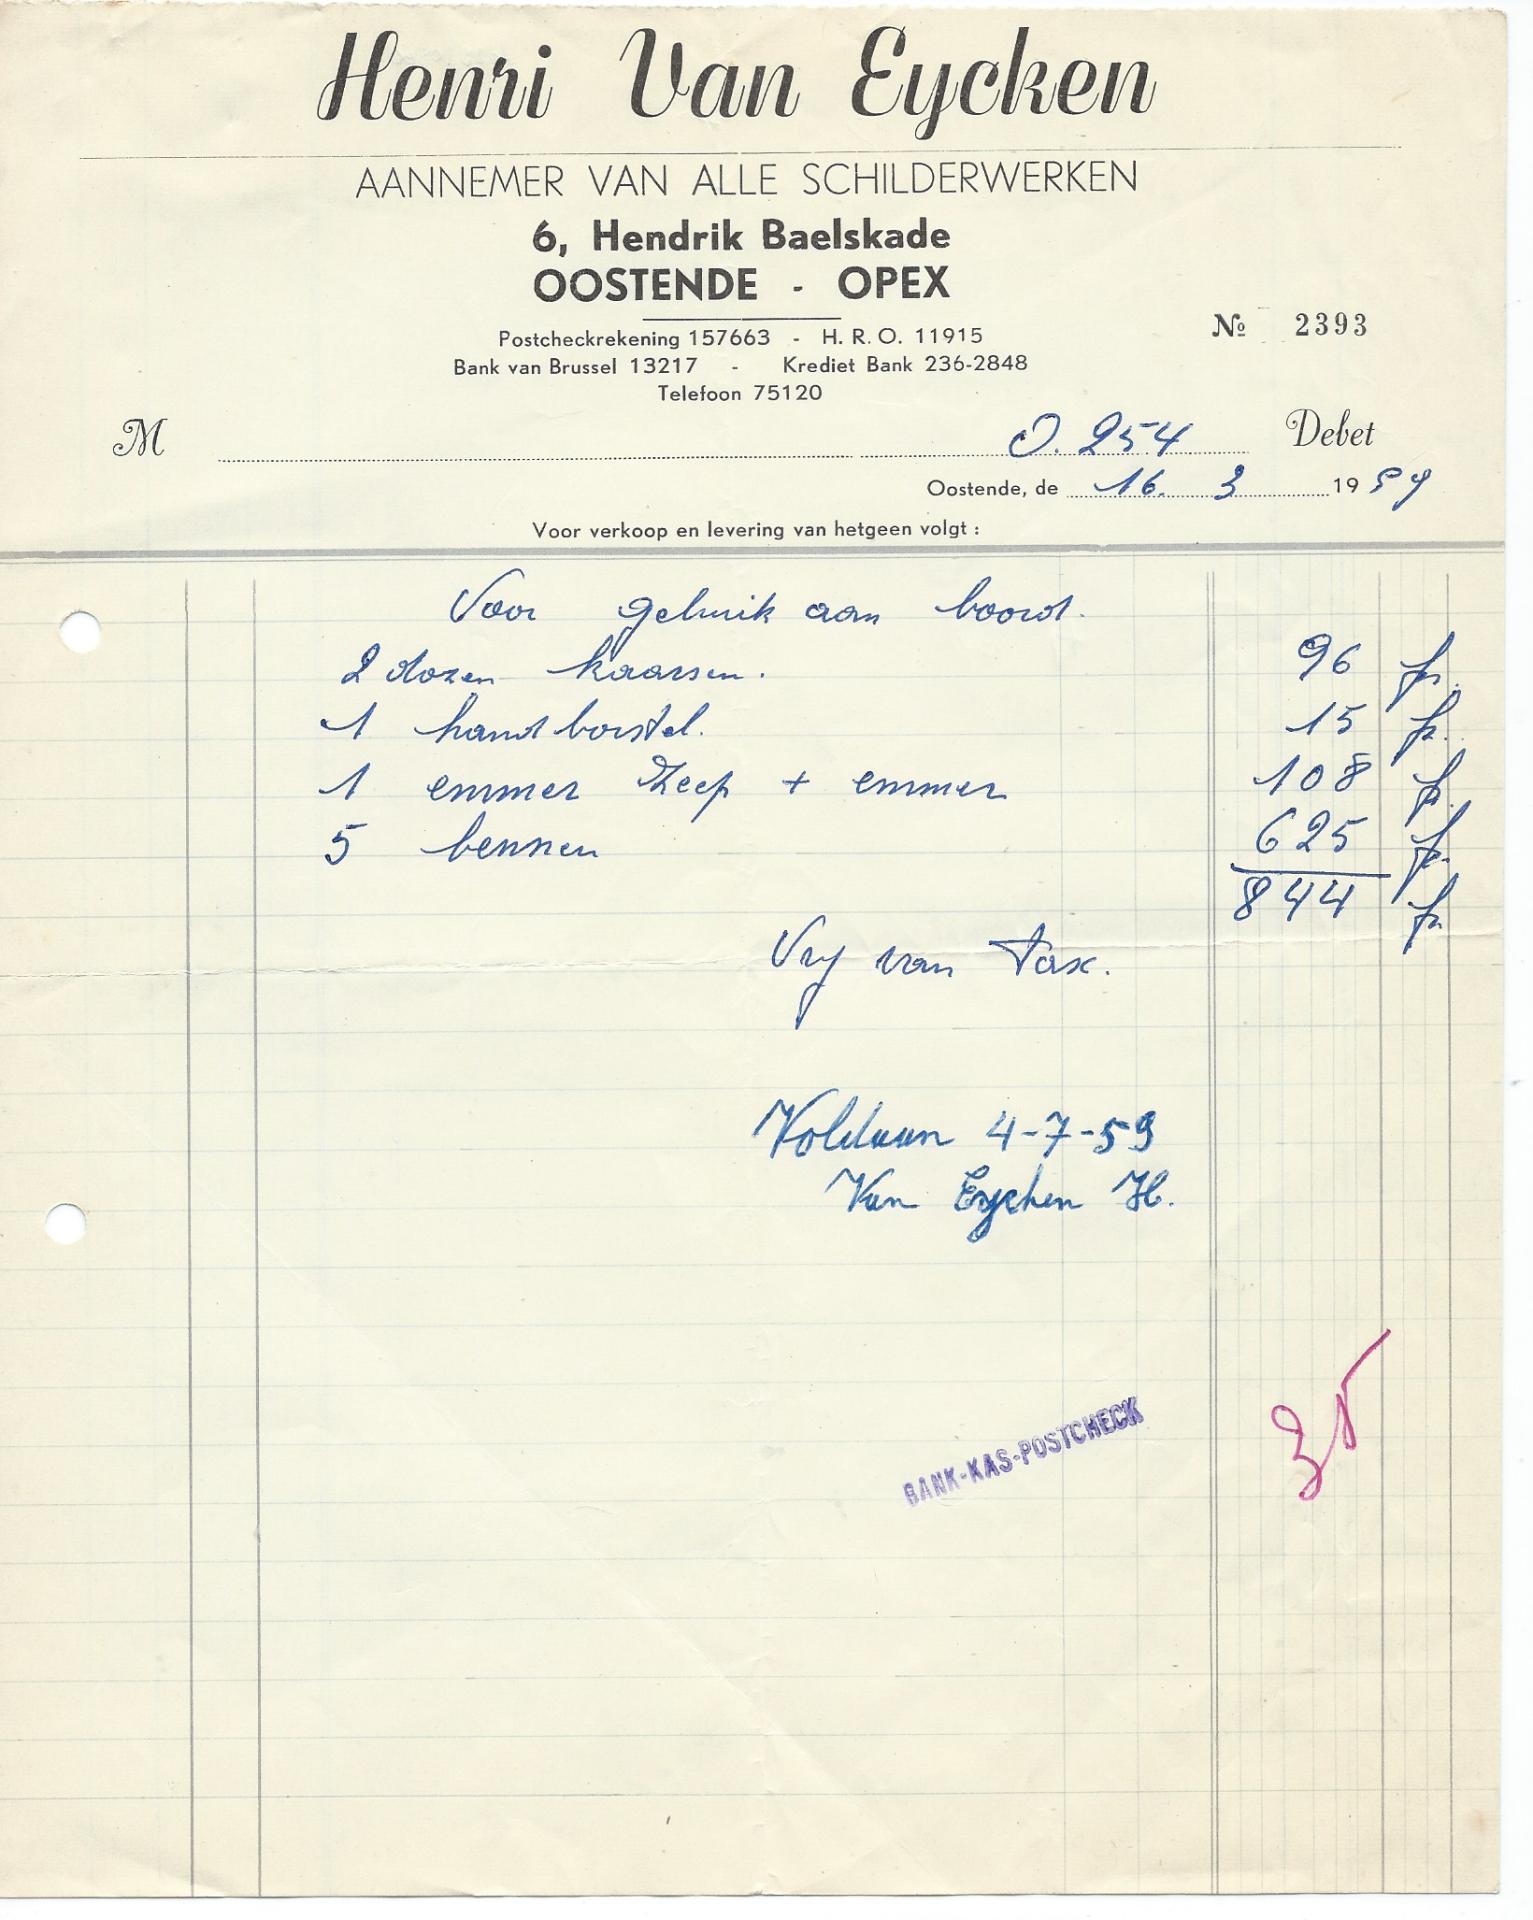 Henri Van Eycken
AANNEMER VAN ALLE SCHILDERWERKEN
6, Hendrik Baelskade
OOSTENDE - OPEX
Postcheckrekening 157663 - H. R. O. 11915
Bank van Brussel 13217 - Krediet Bank 236-2848
Telefoon 75120
№ 2393
M O. 254 Debet
Oostende, de 16. 3 1959
Voor verkoop en levering van hetgeen volgt :
Voor gebruik aan boord.
2 dozen kaarsen. 96 fr.
1 handborstel. 15 fr.
1 emmer Zeep + emmer 108 fr.
5 bennen 625 fr.
844 fr
Vrij van Tax.
Voldaan 4-7-59
Van Eycken H.
BANK-KAS-POSTCHECK